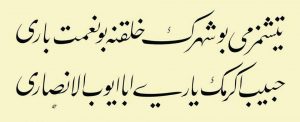 یتشمزمی بو شهرك خلقنه بو نعمت باری
حبیب اکرمك یاری ابا ایوب الانصاری